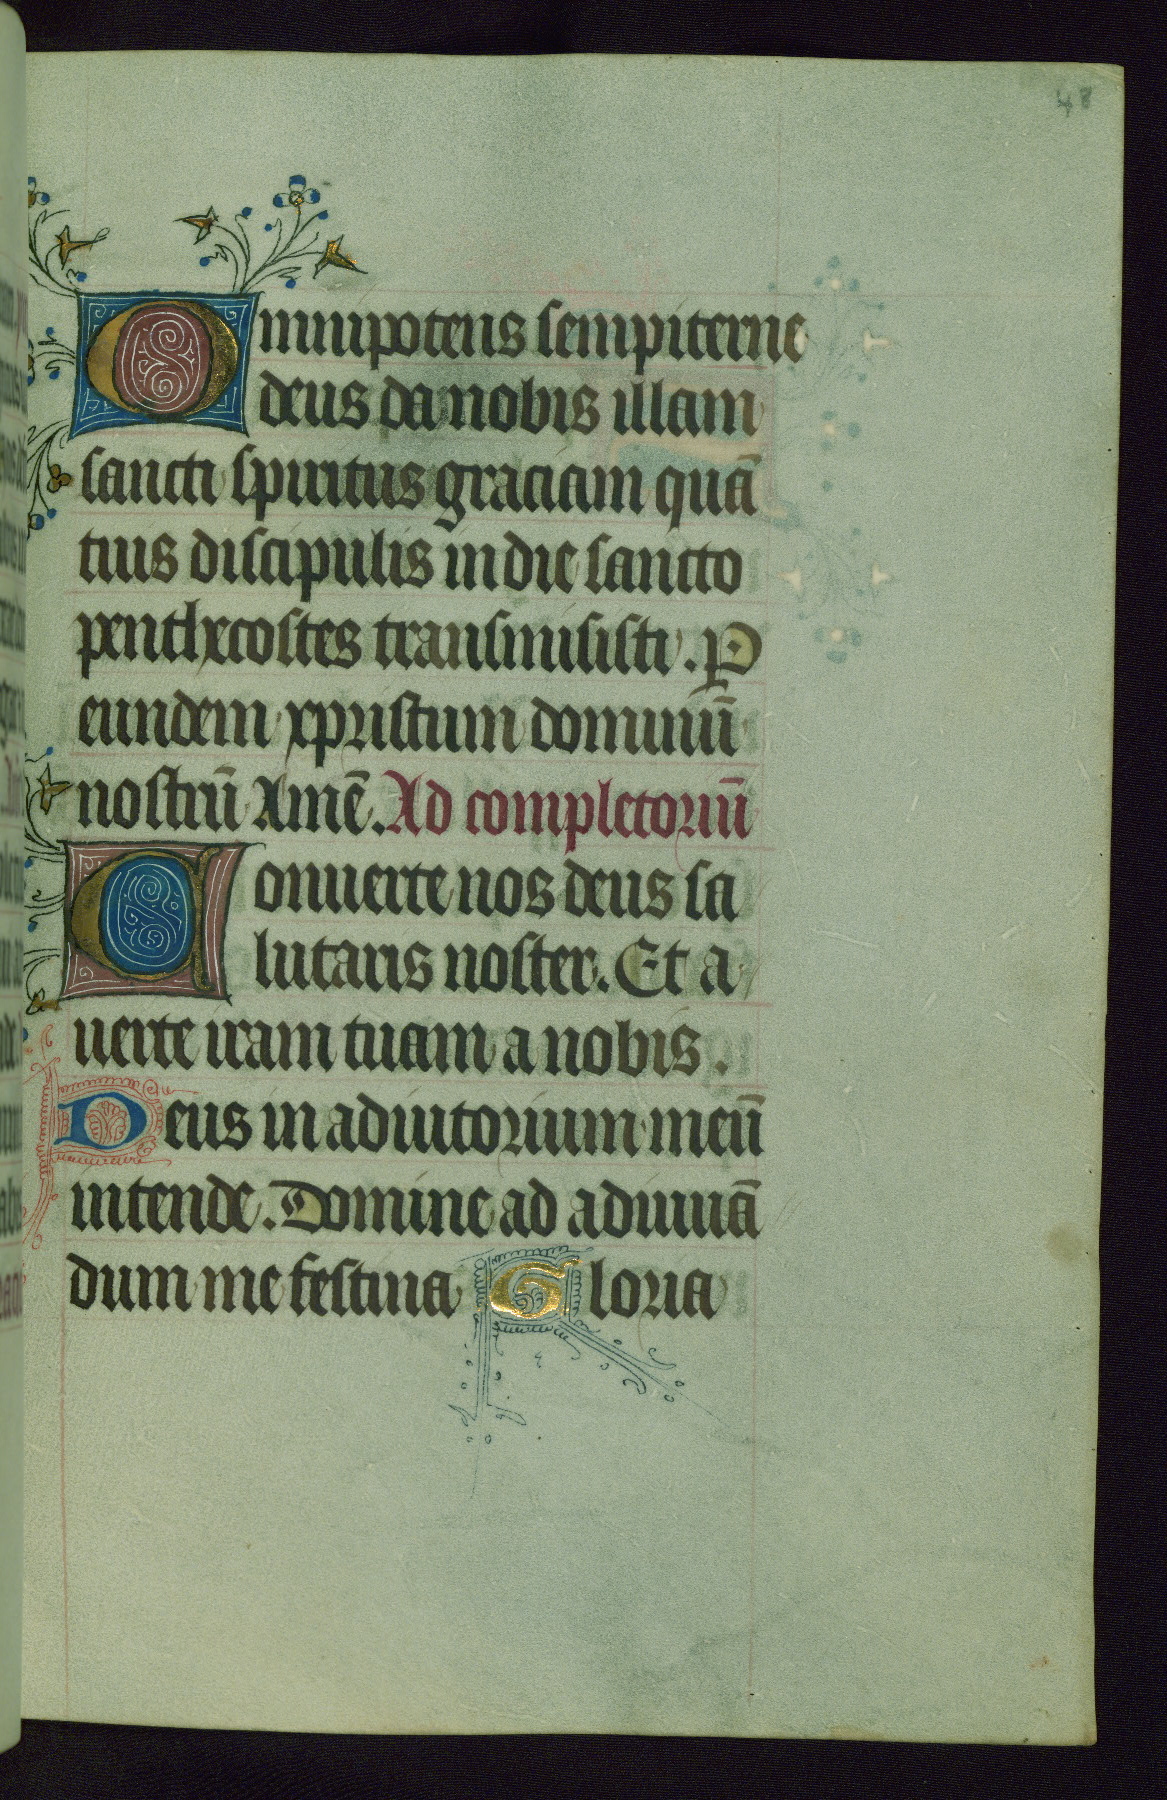 48
Omnipotens sempiterne
deus da nobis illam
sancti spiritus graciam quā
tuis discipulis in die sancto
penthecostes transmisisti. P
eundem xpristum dominū
nostrū Amē. Ad completoriū
Conuerte nos deus sa
lutaris noster. Et a
uerte iram tuam a nobis.
Deus in adiutorium meū
intende. Domine ad adiuuā
dum me festina Gloria